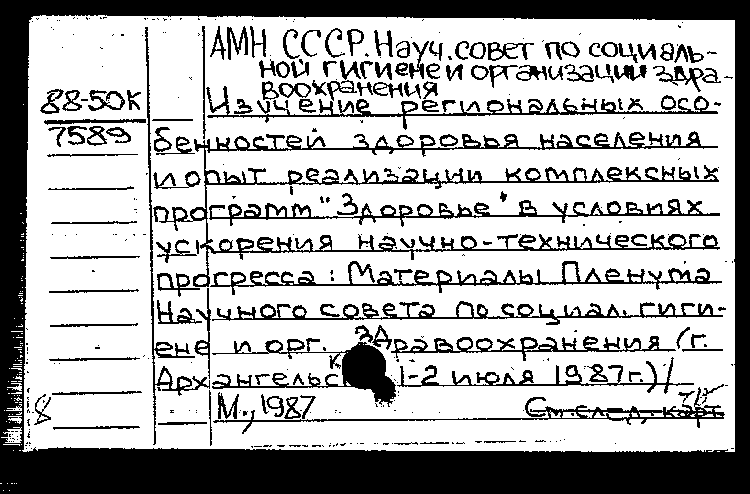 АМН СССР. Науч. совет по социаль-
ной гигиене и организации здра-
воохранения
88-50К
7589
Изучение региональных осо-
бенностей здоровья населения
и опыт реализации комплексных
программ "Здоровье" в условиях
ускорения научно-технического
прогресса: Материалы Пленума
Научного совета по социал. гиги-
ене и орг. здравоохранения (г.
Архангельск 1-2 июля 1987г.)/
М., 1987
См. след. карт
8